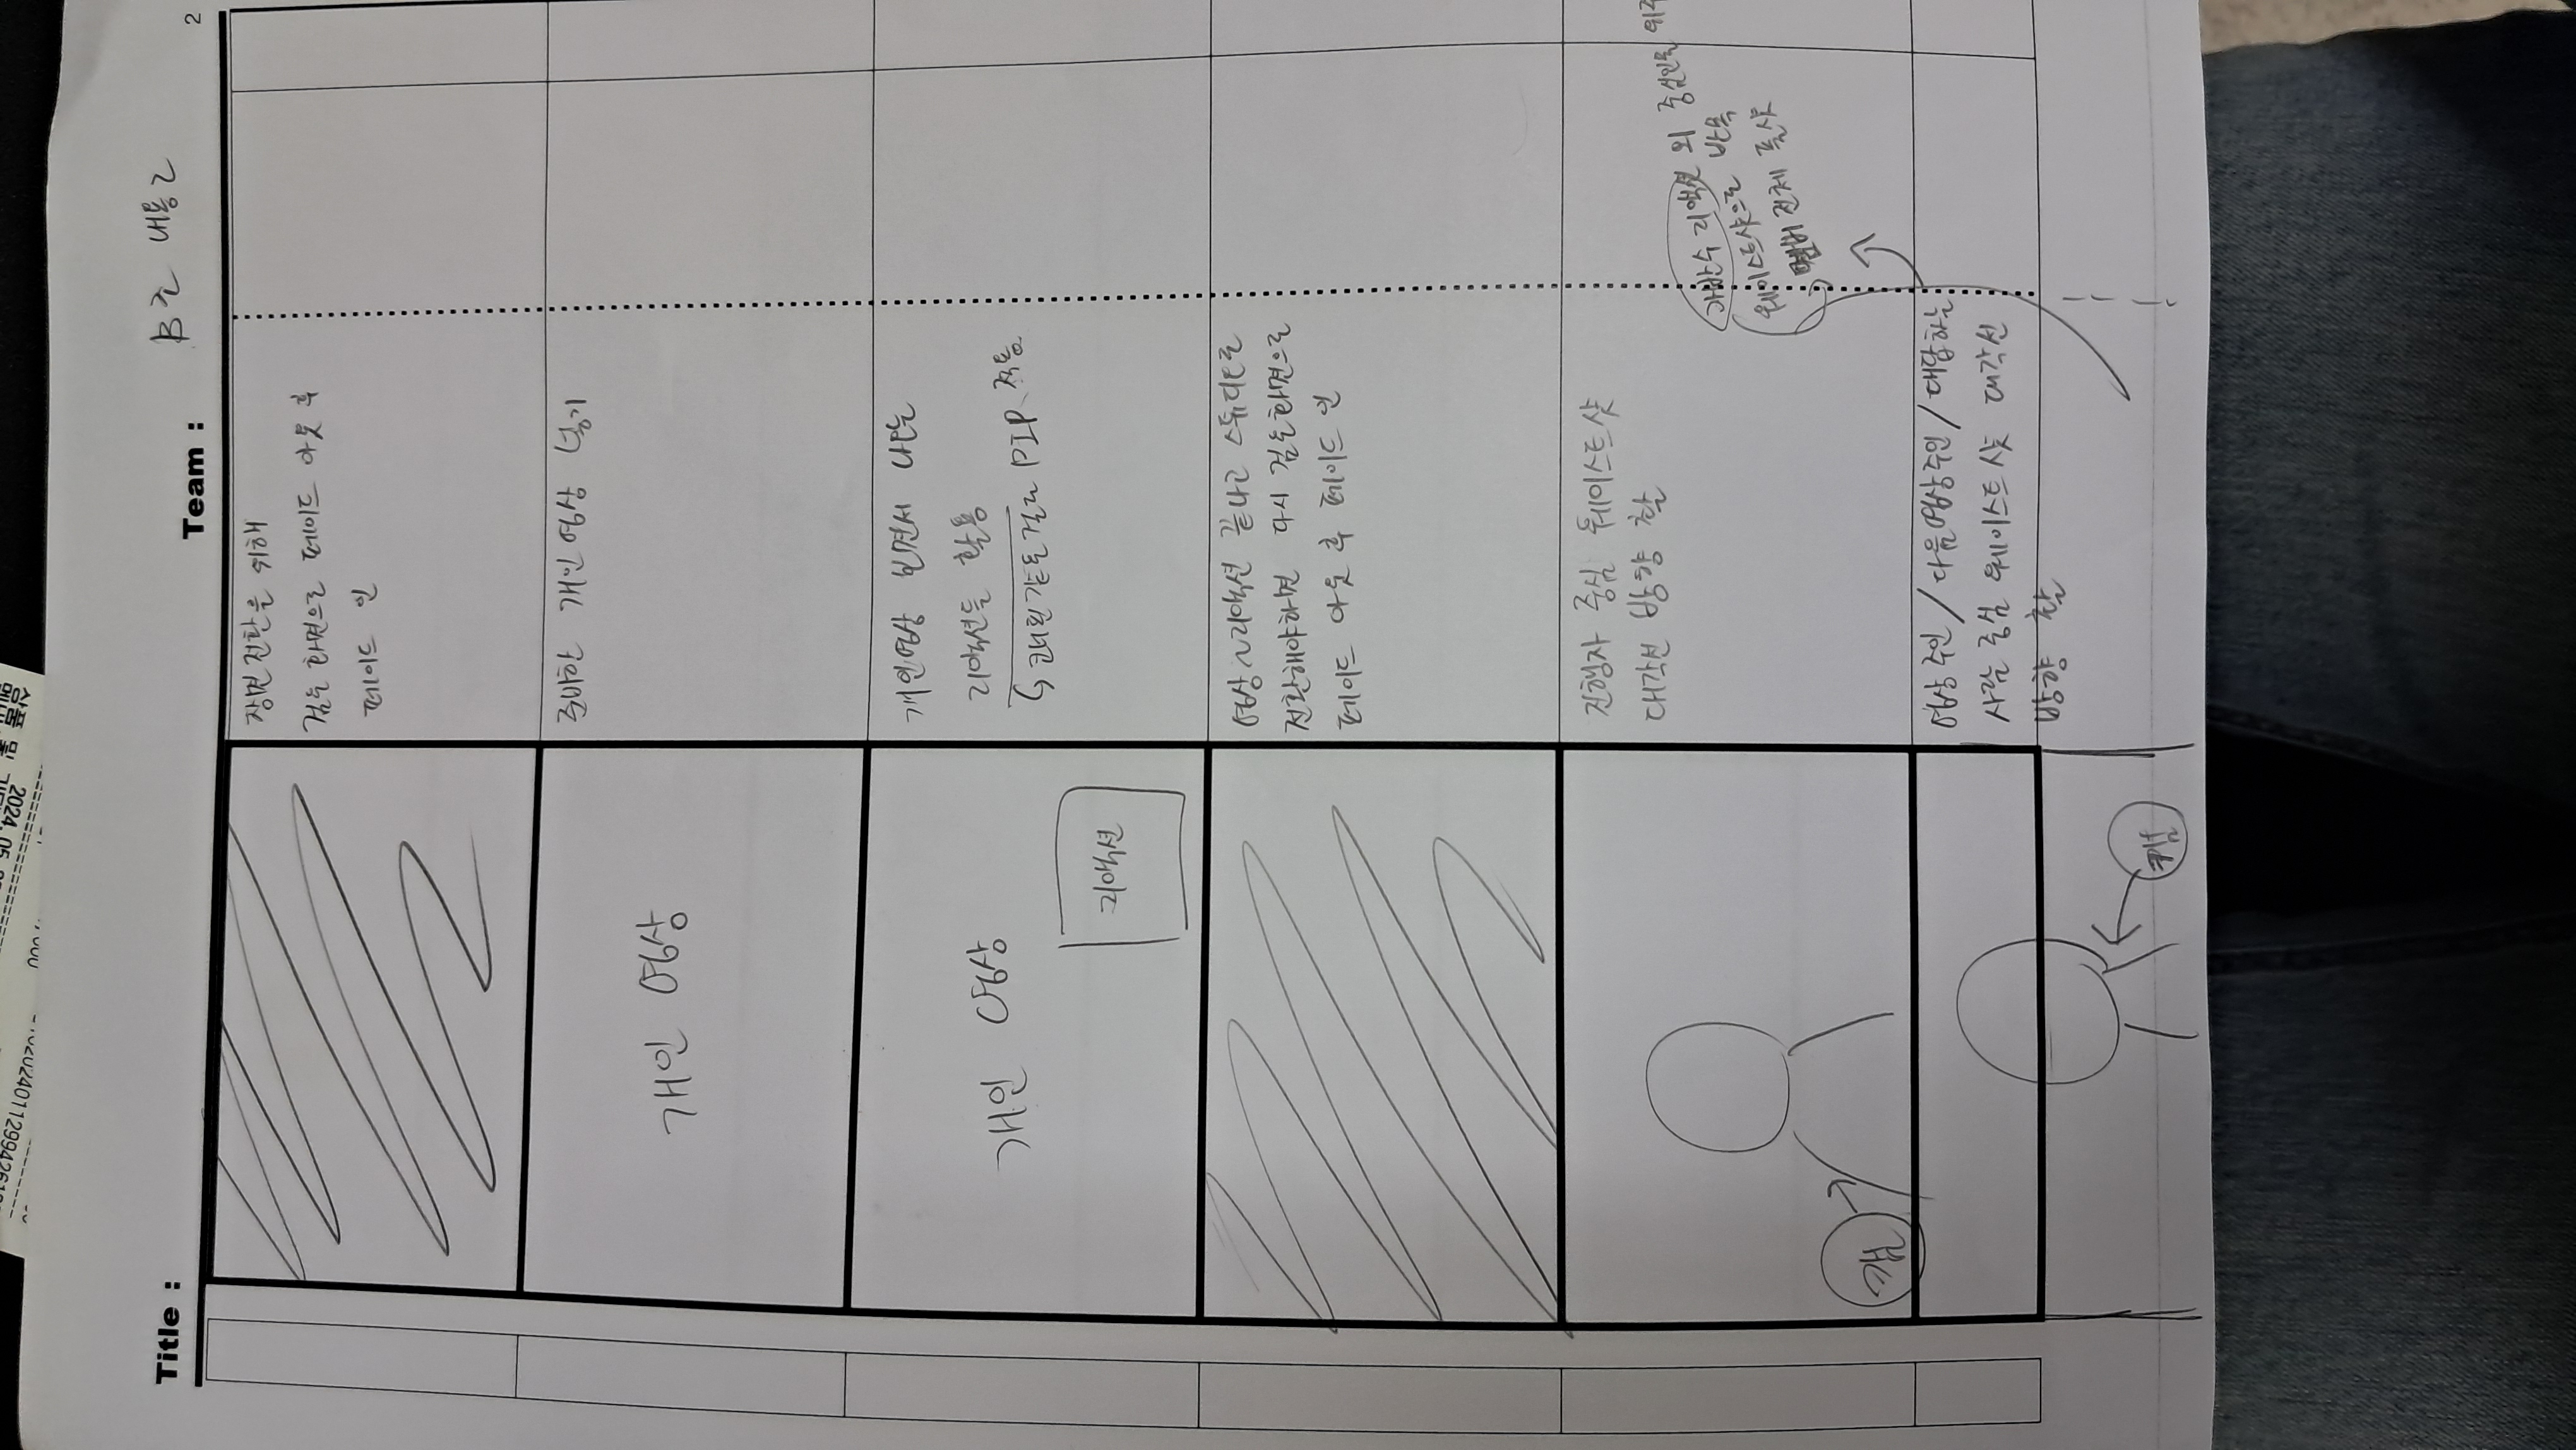 2024. 05.
Title :
Team :
B조 내용2
2
장면전환을 위해
검은 화면으로 페이드 아웃 후
페이드 인
개인 영상
준비한 개인영상 넣기
개인 영상
리액션
개인영상 보면서 나오는
리액션들 활용
↳ 코너 같은걸로 PIP 적용
영상~리액션 끝나고 스튜디오로
전환해야하면 다시 검은화면으로
페이드 아웃 후 페이드 인
캠
진행자 중심 웨이스트샷
대각선 방향 촬
과반수 리액션 외 중심인물 위주
웨이스트샷으로 반복
멤버 전체 풀샷
캠
영상주인 / 다음영상주인 / 대답하는
사람 중심 웨이스트샷 대각선
방향 촬